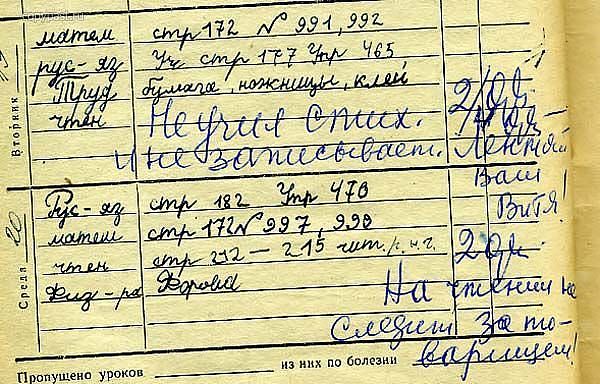 copypast.ru
Вторник
матем стр 172 № 991, 992
рус-яз Уч стр 177 Упр 465
Труд бумага, ножницы, клей
чтен Не учил стих. 2/Об.
и не записывает. Лентяй
Ваш
Витя!
Среда 20
Рус-яз стр 182 Упр 470
матем стр 172 № 997, 998
чтен стр 212 – 215 чит. 2
Физ-ра Форма
На чтении не
следит за то-
варищем!
Пропущено уроков из них по болезни